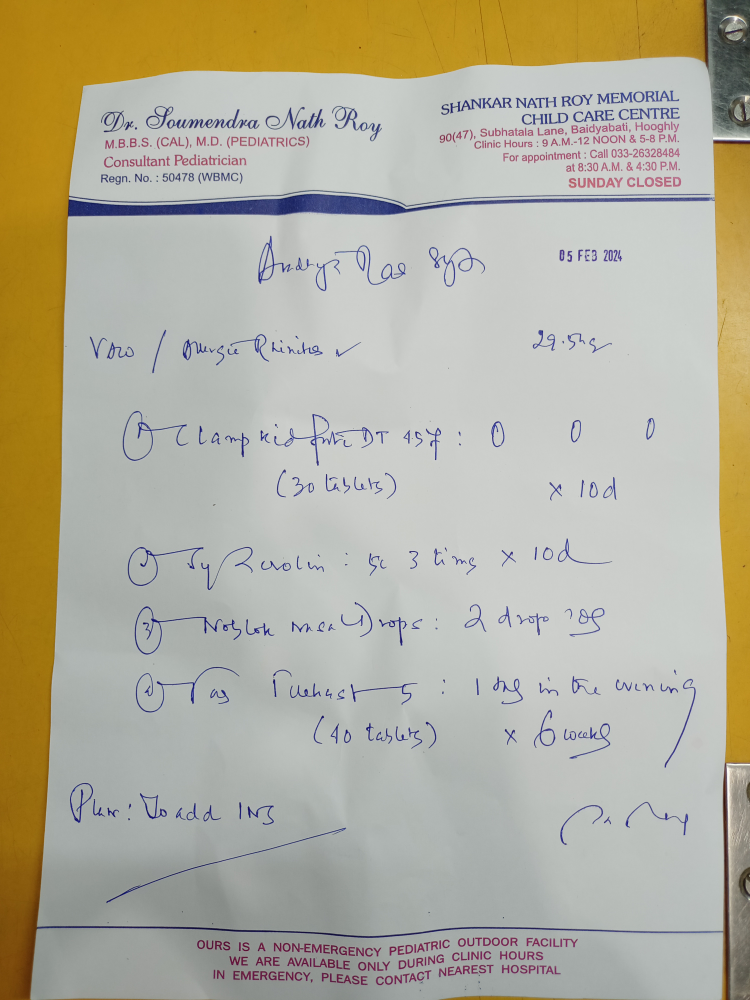 Dr. Soumendra Nath Roy
M.B.B.S. (CAL), M.D. (PEDIATRICS)
Consultant Pediatrician
Regn. No. : 50478 (WBMC)
SHANKAR NATH ROY MEMORIAL
CHILD CARE CENTRE
90(47), Subhatala Lane, Baidyabati, Hooghly
Clinic Hours : 9 A.M.-12 NOON & 5-8 P.M.
For appointment : Call 033-26328484
at 8:30 A.M. & 4:30 P.M.
SUNDAY CLOSED
05 FEB 2024
/ Allergic Rhinitis ✓ 29.5kg
1 Clamp kid forte DT 457 : 0 0 0
(30 tablets) x 10d
2 Sy : 5c 3 times x 10d
3 nasal Drops : 2 drop
4 5 : 1 in the evening
(40 tablets) x 6 weeks
Plan: To add INS
OURS IS A NON-EMERGENCY PEDIATRIC OUTDOOR FACILITY
WE ARE AVAILABLE ONLY DURING CLINIC HOURS
IN EMERGENCY, PLEASE CONTACT NEAREST HOSPITAL